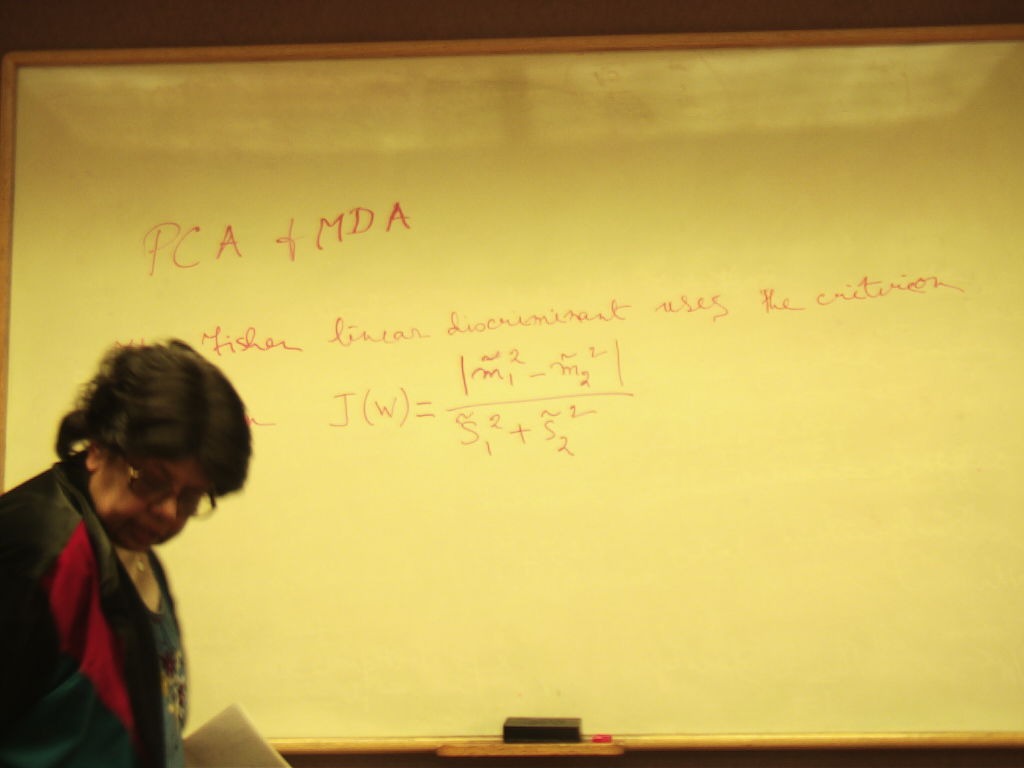 PCA & MDA
Fisher linear discriminant uses the criterion
J(W) = |m̃₁² - m̃₂²| / S̃₁² + S̃₂²